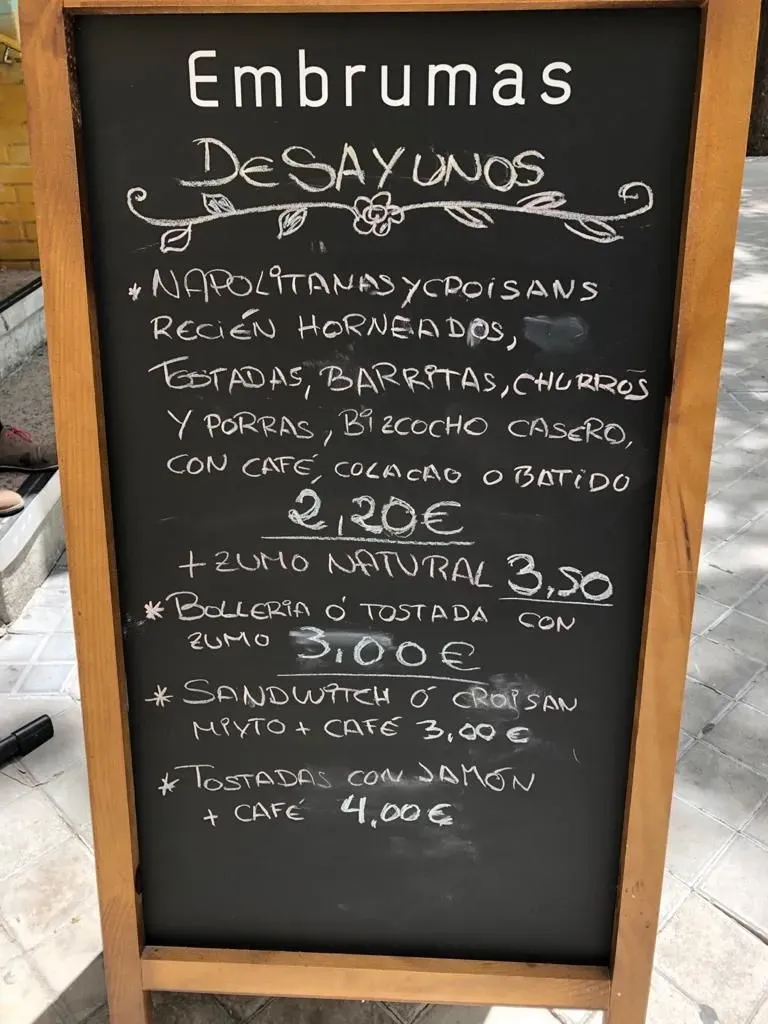 Embrumas
DESAYUNOS
* NAPOLITANAS Y CROISANS
RECIÉN HORNEADOS,
TOSTADAS, BARRITAS, CHURROS
Y PORRAS, BIZCOCHO CASERO,
CON CAFÉ, COLACAO O BATIDO
2,20€
+ ZUMO NATURAL 3,50
* BOLLERIA Ó TOSTADA CON
ZUMO 3,00€
* SANDWITCH Ó CROISAN
MIXTO + CAFÉ 3,00€
* TOSTADAS CON JAMÓN
+ CAFÉ 4,00€